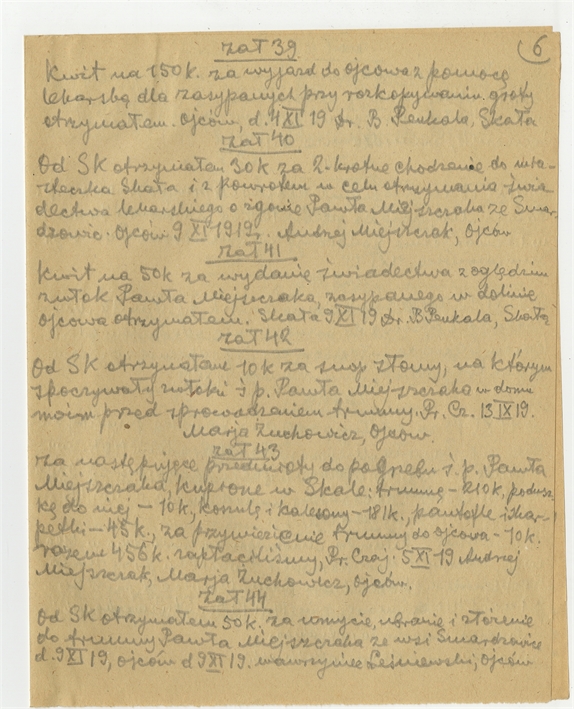 zał 39
6
Kwit na 150 k. za wyjazd do Ojcowa z pomocą
lekarską dla zasypanych przy rozkopywaniu groty
otrzymałem. Ojców, d. 4 XI 19 Dr. B Penkala, Skała
zał 40
Od SK otrzymałem 30 k za 2-krotne chodzenie do mia-
steczka Skała i z powrotem w celu otrzymania świa-
dectwa lekarskiego o zgonie Pawła Miejszczaka ze Smar-
dzowic. Ojców 9 XI 1919. Andrzej Miejszczak, Ojców
zał 41
Kwit na 50 k za wydanie świadectwa z oględzin
zwłok Pawła Miejszczaka, zasypanego w dolinie
Ojcowa otrzymałem. Skała 9 XI 19 Dr. B Penkala, Skała
zał 42
Od SK otrzymałam 10 k za snop słomy, na którym
spoczywały zwłoki ś p. Pawła Miejszczaka w domu
moim przed sprowadzeniem trumny. Pr. Cz. 13 IX 19.
Marja Żuchowicz, Ojców.
zał 43
Za następujące przedmioty do pogrzebu ś. p. Pawła
Miejszczaka, kupione w Skale: trumnę - 210 k, podusz-
kę do niej - 10 k, koszulę i kalesony - 181 k., pantofle i skar-
petki - 45 k., za przywiezienie trumny do Ojcowa - 10 k.
razem 456 k. zapłaciliśmy, Pr. Czaj. 5 XI 19 Andrzej
Miejszczak, Marja Żuchowicz, Ojców.
zał 44
Od SK otrzymałem 50 k. za umycie, ubranie i złożenie
do trumny Pawła Miejszczaka ze wsi Smardzowice
d. 9 XI 19, Ojców d 9 XI 19. Wawrzyniec Leśniewski, Ojców